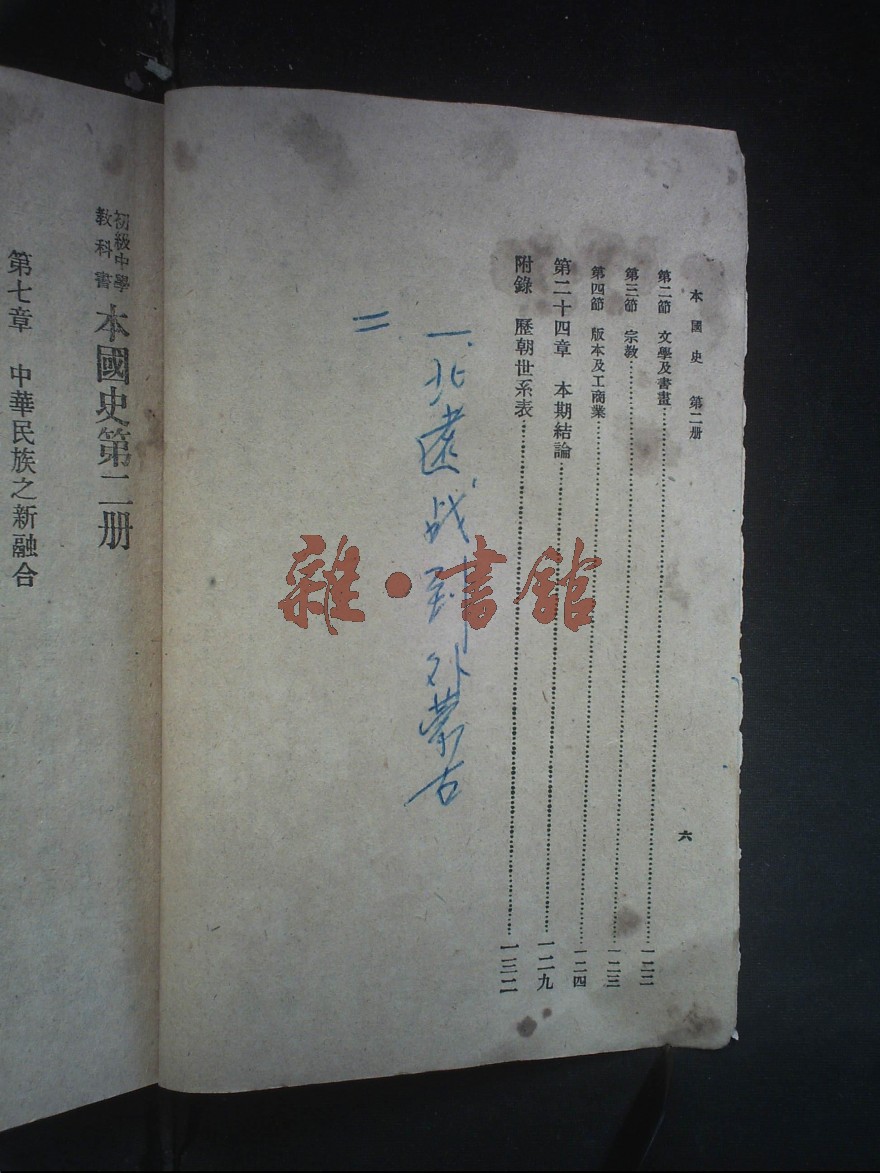 本國史 第二册
六
第二節 文學及書畫 一二二
第三節 宗教 一二三
第四節 版本及工商業 一二四
第二十四章 本期結論 一二九
附錄 歷朝世系表 一三二
一、北遼战 外蒙古
二
雜·書館
初級中學
教科書
本國史第二册
第七章 中華民族之新融合